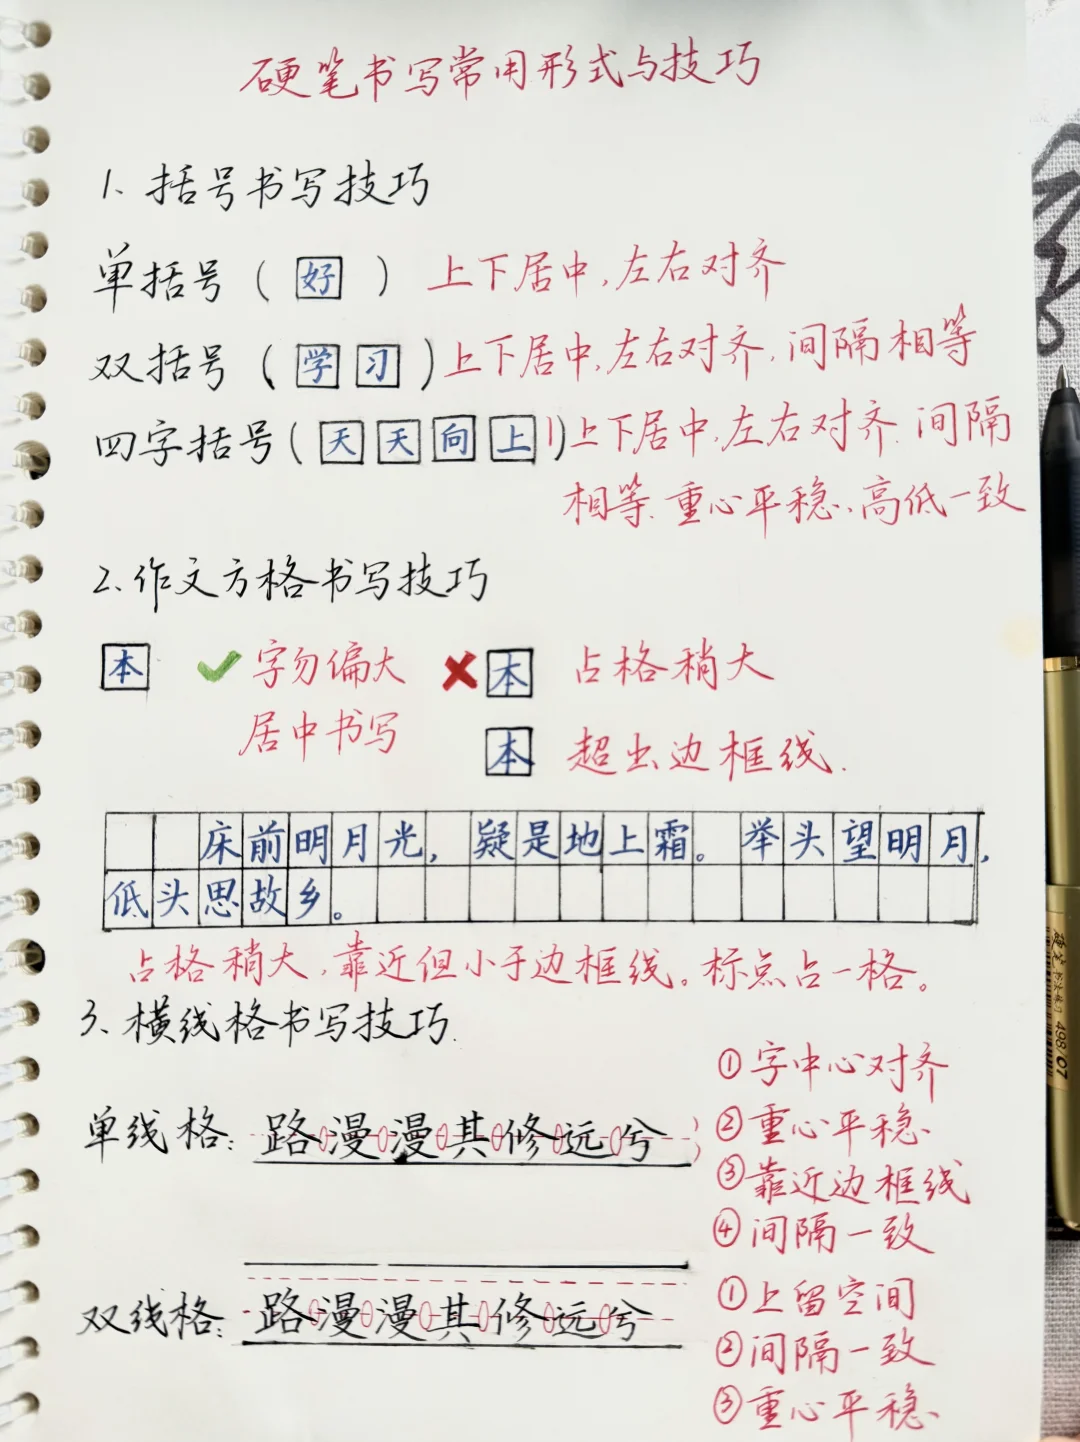 硬笔书写常用形式与技巧
1、括号书写技巧
单括号（好） 上下居中,左右对齐
双括号（学习）上下居中,左右对齐,间隔相等
四字括号（天天向上）上下居中,左右对齐、间隔
相等、重心平稳、高低一致
2、作文方格书写技巧
本 字勿偏大 本 占格稍大
居中书写 本 超出边框线.
床前明月光， 疑是地上霜。 举头望明月，
低头思故乡。
占格稍大,靠近但小于边框线。标点占一格。
3、横线格书写技巧.
①字中心对齐
单线格: 路漫漫其修远兮 ②重心平稳、
③靠近边框线
④间隔一致
双线格: 路漫漫其修远兮 ①上留空间
②间隔一致
③重心平稳、
498 07